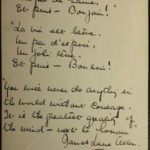 Et puis — Bonjour!
"La vie est brève,
Un peu d'espoir,
Un joli rêve,
Et puis — Bonsoir!"
"You will never do anything in
the world without Courage.
It is the greatest quality of
the mind — next to honour.
James Lane Allen.